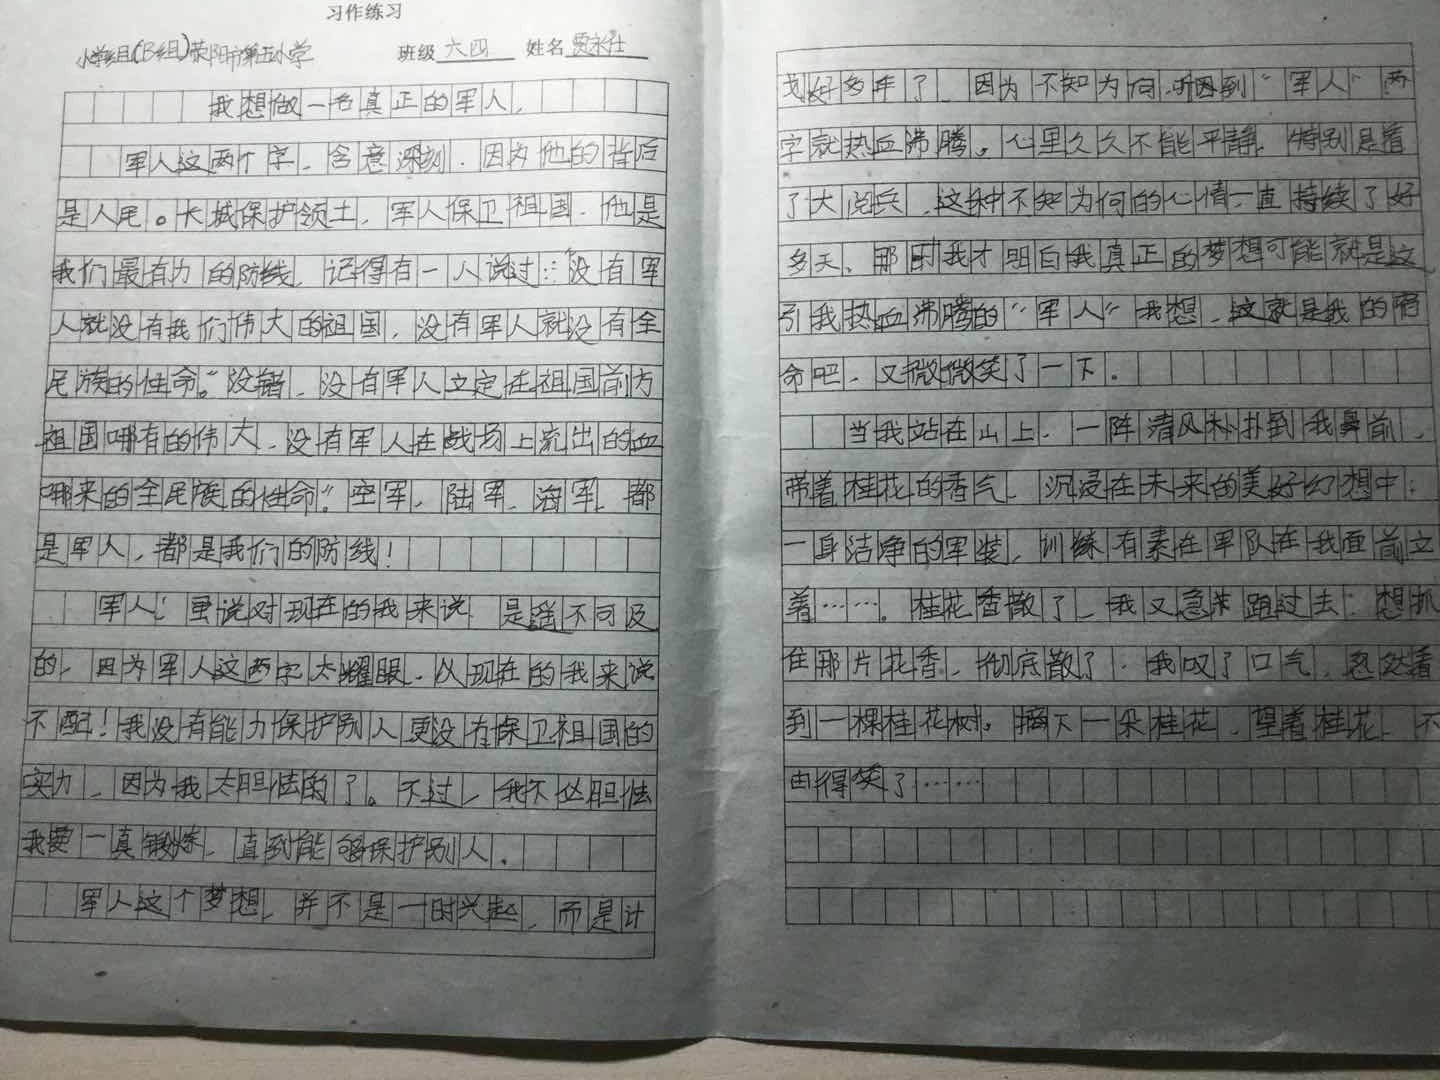 习作练习
小学组(B组)荥阳市第五小学 班级 六四 姓名 贾永仕
我想做一名真正的军人.
军人这两个字、含意深刻.因为他的背后
是人民。长城保护领土,军人保卫祖国.他是
我们最有力的防线.记得有一人说过:"没有军
人就没有我们伟大的祖国,没有军人就没有全
民族的性命。"没错、没有军人立定在祖国前方
祖国哪有的伟大、没有军人在战场上流出的血
哪来的全民族的性命"。空军、陆军、海军、都
是军人,都是我们的防线!
军人!虽说对现在的我来说.是遥不可及
的、因为军人这两字太耀眼、以现在的我来说
不配!我没有能力保护别人更没有保卫祖国的
实力、因为我太胆怯的了。不过、我不必胆怯
我要一真锻炼、直到能够保护别人.
军人这个梦想、并不是一时兴起,而是计
划好多年了、因为不知为何.听到"军人"两
字就热血沸腾。心里久久不能平静.特别是看
了大阅兵、这种不知为何的心情一直持续了好
多天、那时我才明白我真正的梦想可能就是这
引我热血沸腾的"军人"我想、这就是我的宿
命吧、又微微笑了一下.
当我站在山上、一阵清风扑到我鼻前、
带着桂花的香气、沉浸在未来的美好幻想中:
一身洁净的军装、训练有素在军队在我面前立
着……。桂花香散了、我又急来跑过去:想抓
住那片花香、彻底散了.我叹了口气、忽然看
到一棵桂花树。摘下一朵桂花、望着桂花、不
由得笑了……